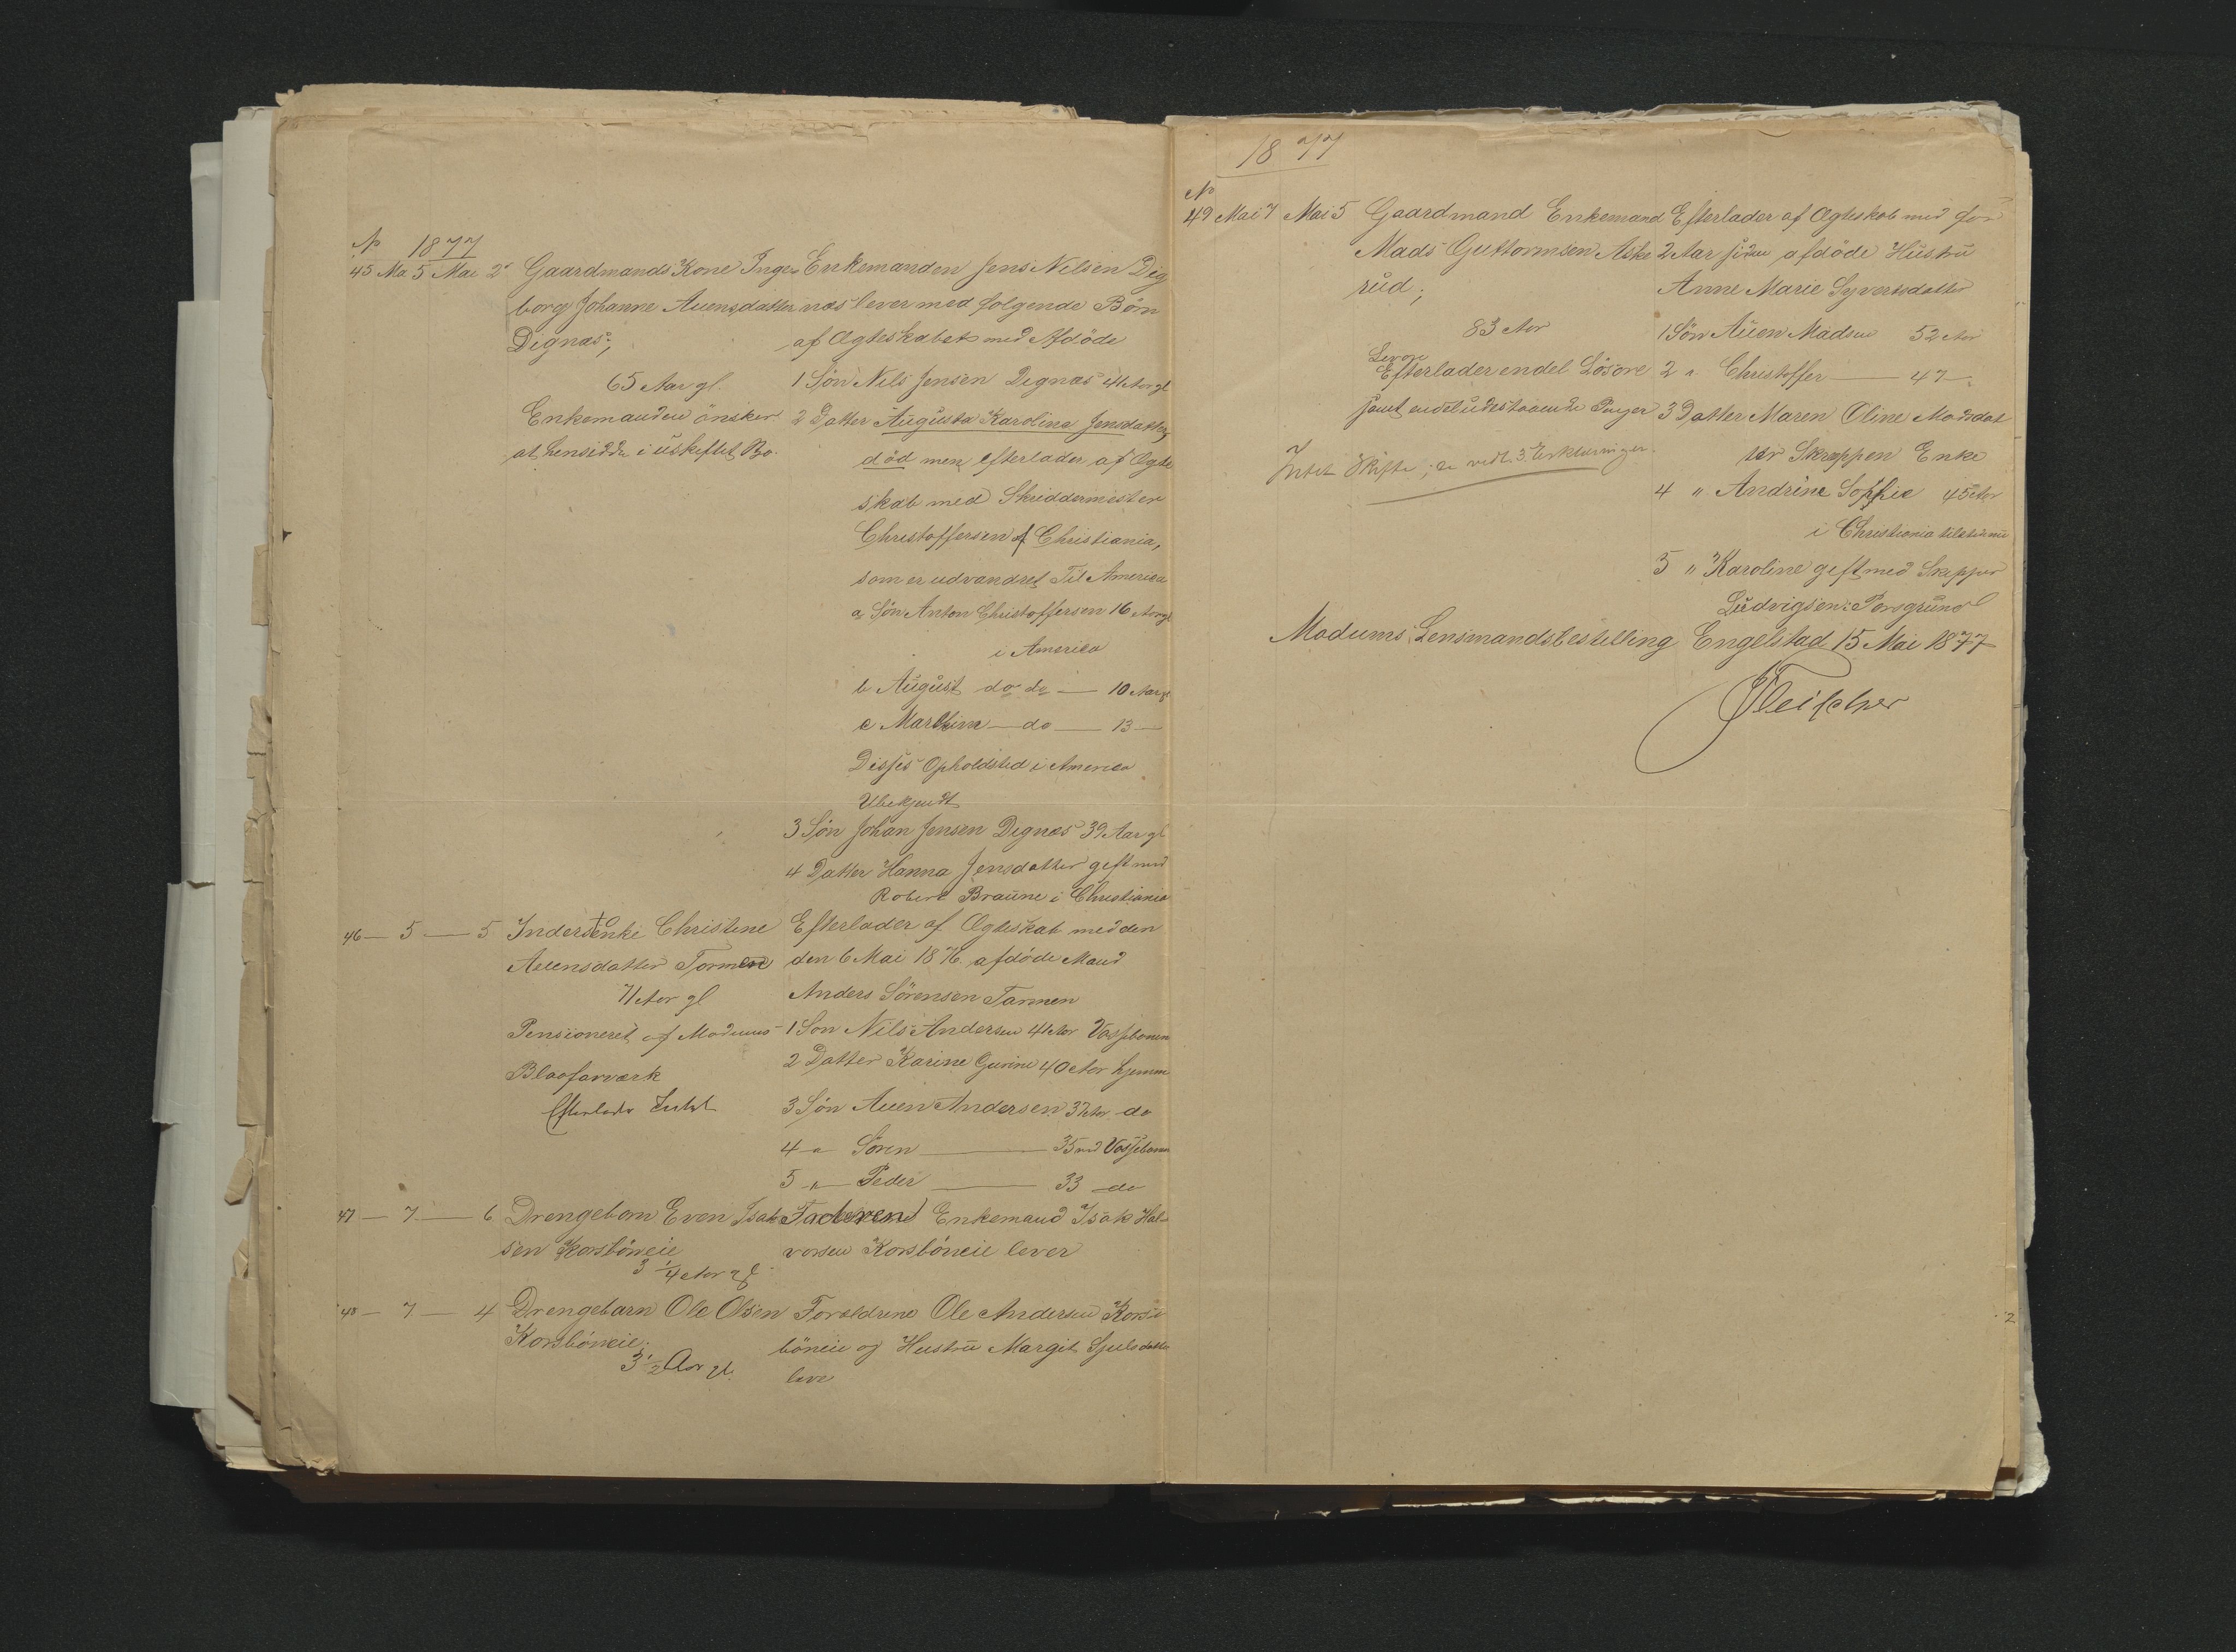 N 1877
45 Ma 5 Mai 2 Gaardmands Kone Inge-
borg Johanne Auensdatter
Dignæs;
65 Aar gl.
Enkemanden önsker
at hensidde i uskiftet Bo.
Enkemanden Jens Nilsen Dig
næs lever med følgende Börn
af Ægteskabet med Afdöde
1 Sön Nils Jensen Dignæs 41 Aar gl
2 Datter Augusta Karoline Jensdatter
död men efterlader af Ægte
skab med Skreddermester
Christoffersen af Christiania,
som er udvandret Til America
a Sön Anton Christoffersen 16 Aar gl
i America
b August do do — 10 Aar gl
c — do — 13 —
Disses Opholdsted i America
Ubekjendt
3 Sön Johan Jensen Dignæs 39 Aar gl
4 Datter Hanna Jensdatter gift med
Robert Braune i Christiania
46 — 5 — 5 Inderstenke Christine
Auensdatter Tormen
71 Aar gl
Pensioneret af Modums
Blaafarværk
Efterlader Intet
Efterlader af Ægteskab med den
den 6 Mai 1876 afdöde Mand
Anders Sörensen Tormen
1 Son Nils Andersen 41 Aar Vassbonen
2 Datter Karine Gurine 40 Aar hjemme
3 Sön Auen Andersen 37 Aar do
4 " Sören — 35 Vassbonen
5 " Peder — 33 do
47 — 7 — 6 Drengebarn Even Isak
sen Korsböneie
3 1/4 Aar gl
Faderen Enkemand Isak Hal-
vorsen Korsböneie lever
48 — 7 — 4 Drengebarn Ole Olsen
Korsböneie;
3 1/2 Aar gl.
Forældrene Ole Andersen Kors-
böneie og Hustru Margit Gjulsdatter
leve
1877
N
49 Mai 7 Mai 5 Gaardmand Enkemand
Mads Guttormsen Aske
rud;
83 Aar
Efterlader endel Lösöre
samt endel udestaaende Penger
Intet Skifte; se vedl. 3 Erklæringer.
Efterlader af Ægteskab med for
2 Aar siden afdöde Hustru
Anne Marie Syvertsdatter
1 Sön Auen Madsen 52 Aar
2 " Christoffer — 47 —
3 Datter Maren Oline Madsdat
ter Skreppen Enke
4 " Andrine Sophie 45 Aar
i Christiania
5 " Karoline gift med Skipper
Ludvigsen: Porsgrund
Modums Lensmandsbestilling Engelstad 15 Mai 1877
Fleischer